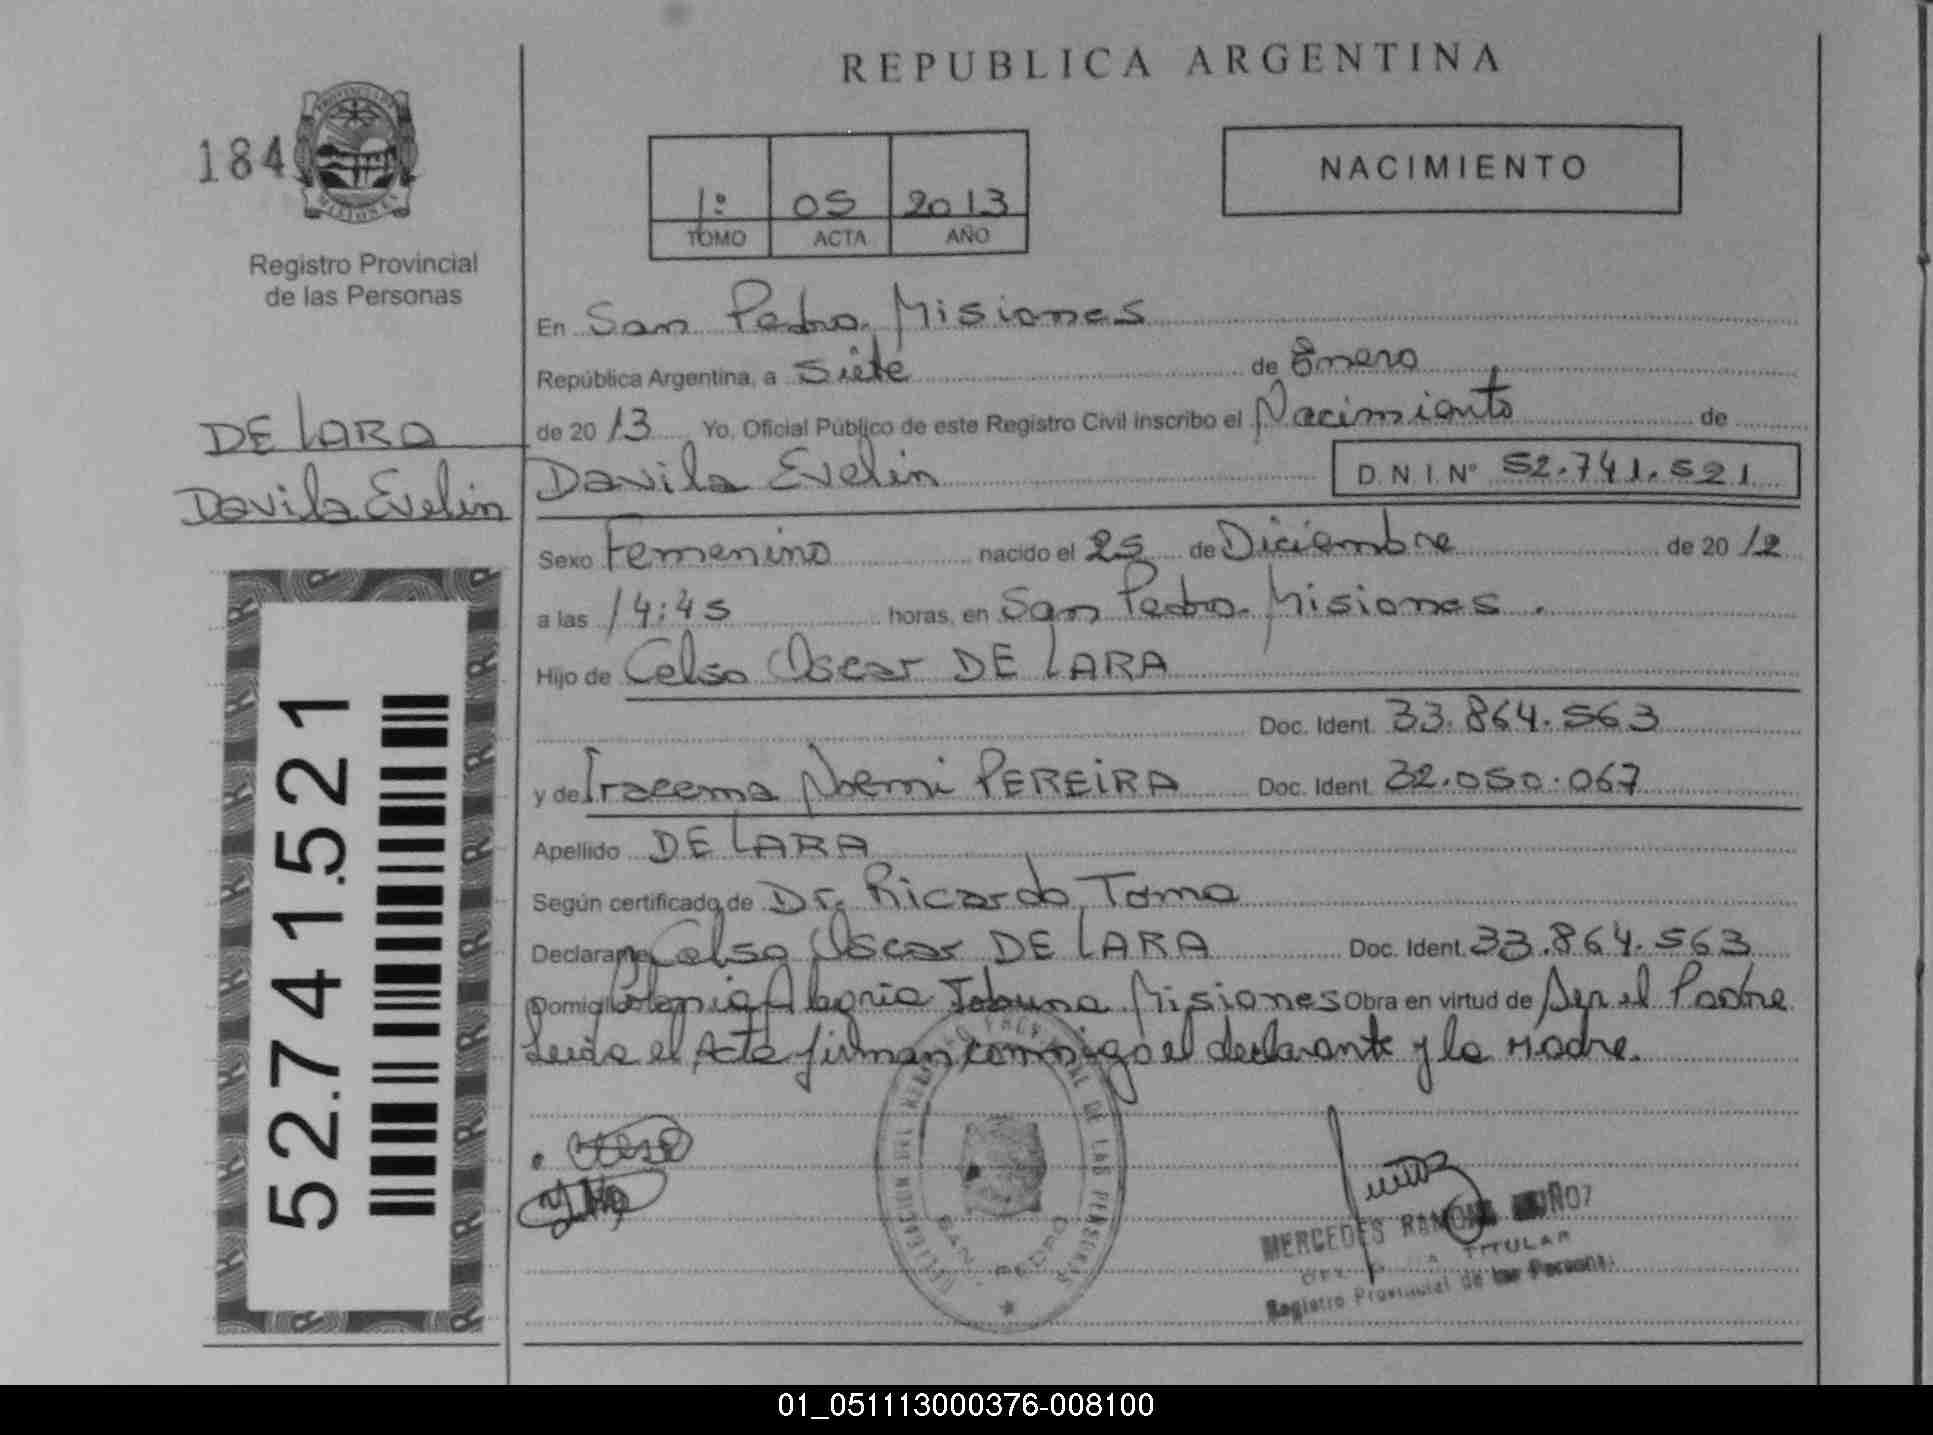 REPUBLICA ARGENTINA
184
PROVINCIA DE
MISIONES
Registro Provincial
de las Personas
1º 05 2013
TOMO ACTA AÑO
NACIMIENTO
En San Pedro. Misiones
República Argentina, a Siete de Enero
de 2013 Yo, Oficial Público de este Registro Civil inscribo el Nacimiento de
DE LARA
Davila Evelin
Davila Evelin D.N.I.Nº 52.741.521
Sexo Femenino nacido el 25 de Diciembre de 2012
a las 14:45 horas, en San Pedro. Misiones.
Hijo de Celso Oscar DE LARA
Doc. Ident. 33.864.563
y de Iracema Noemi PEREIRA Doc. Ident. 32.050.067
Apellido DE LARA
Según certificado de Dr. Ricardo Toma
Declarante Celso Oscar DE LARA Doc. Ident. 33.864.563
Domicilio Colonia Alegria Tobuna Misiones Obra en virtud de Ser el Padre
Leida el Acta firman conmigo el declarante y la Madre.
52.741.521
DELEGACION DEL REGISTRO PROVINCIAL DE LAS PERSONAS
SAN PEDRO
MERCEDES RAMONA MUÑOZ
TITULAR
Registro Provincial de las Personas
01_051113000376-008100